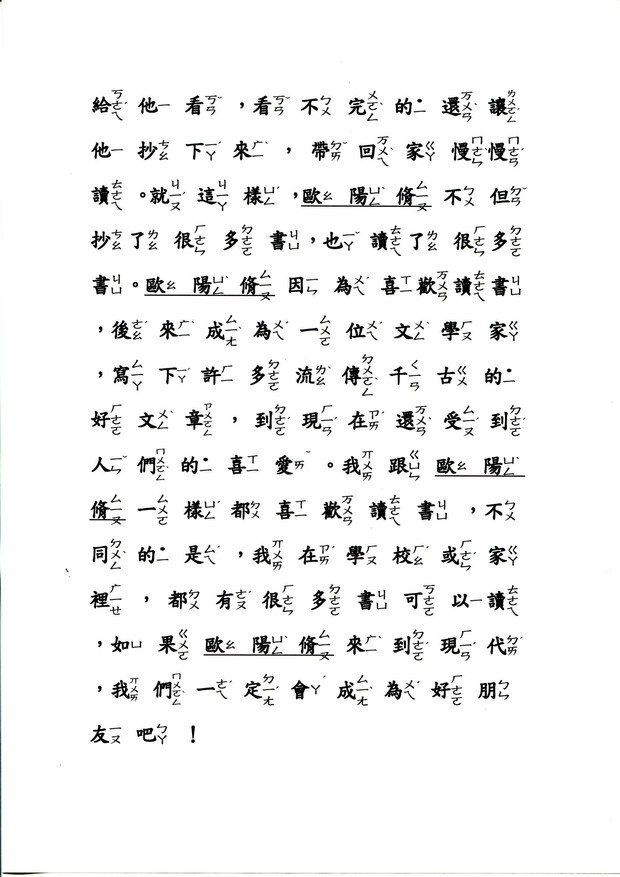 給他看，看不完的還讓
他抄下來，帶回家慢慢
讀。就這樣，歐陽脩不但
抄了很多書，也讀了很多
書。歐陽脩因為喜歡讀書
，後來成為一位文學家
，寫下許多流傳千古的
好文章，到現在還受到
人們的喜愛。我跟歐陽
脩一樣都喜歡讀書，不
同的是，我在學校或家
裡，都有很多書可以讀
，如果歐陽脩來到現代
，我們一定會成為好朋
友吧！